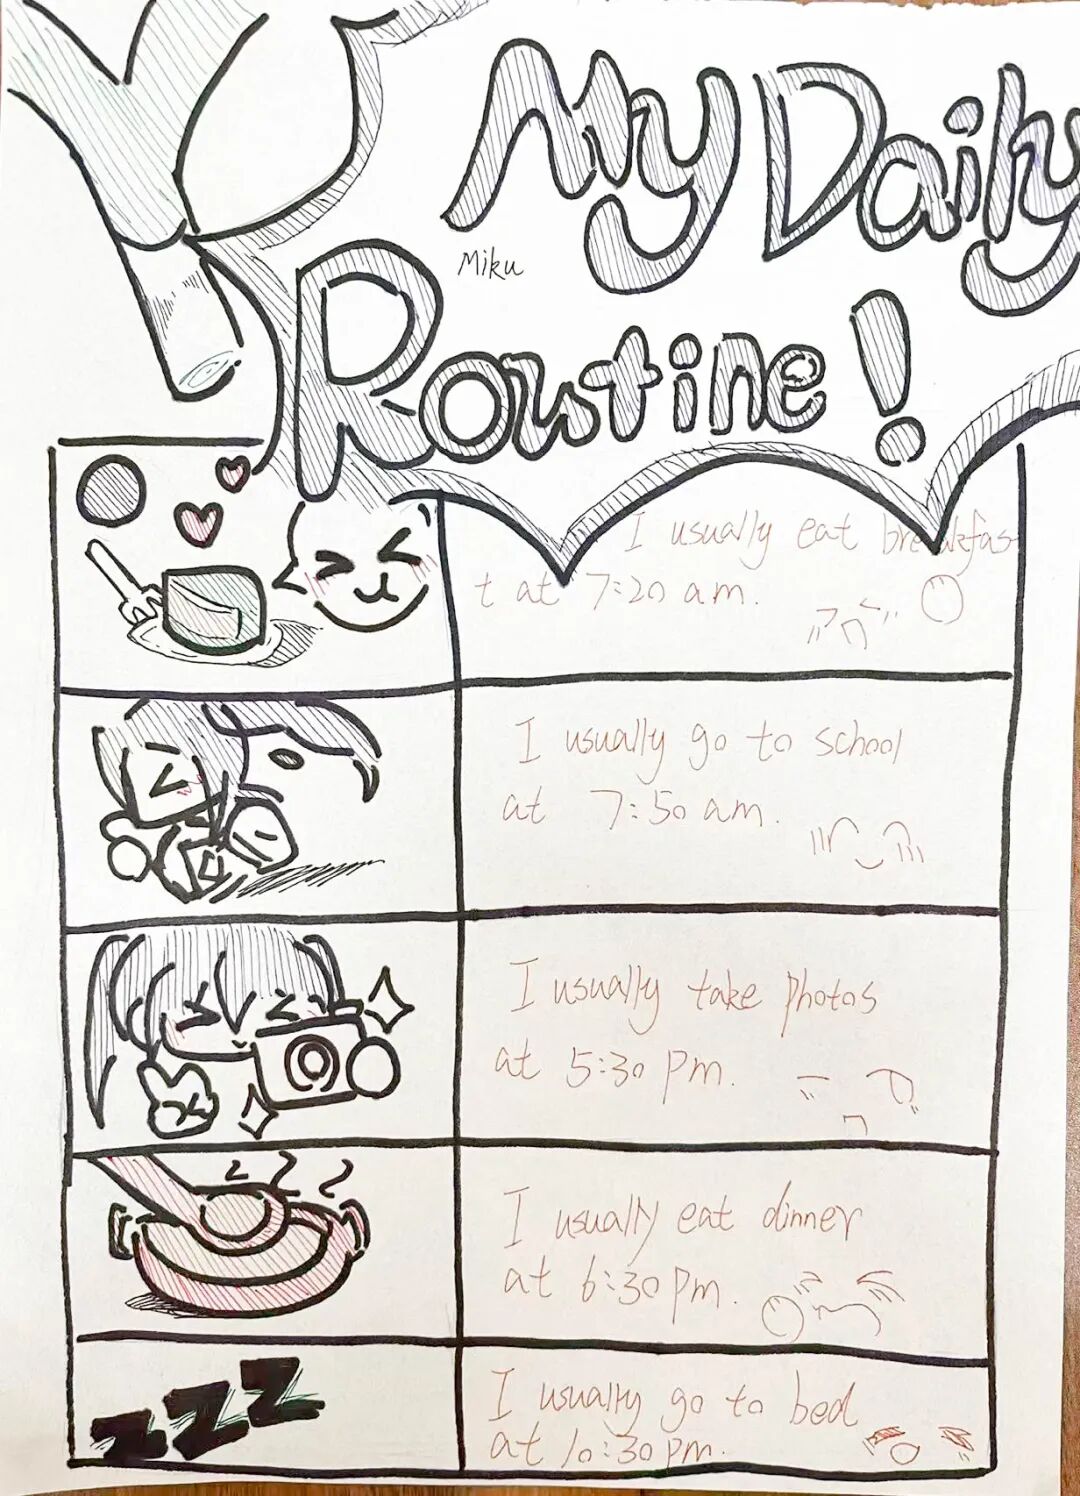 My Daily
Miku
Routine!
I usually eat breakfas
t at 7:20 am.
I usually go to school
at 7:50 am.
I usually take photos
at 5:30 pm.
I usually eat dinner
at 6:30 pm.
zzz
I usually go to bed
at 10:30 pm.